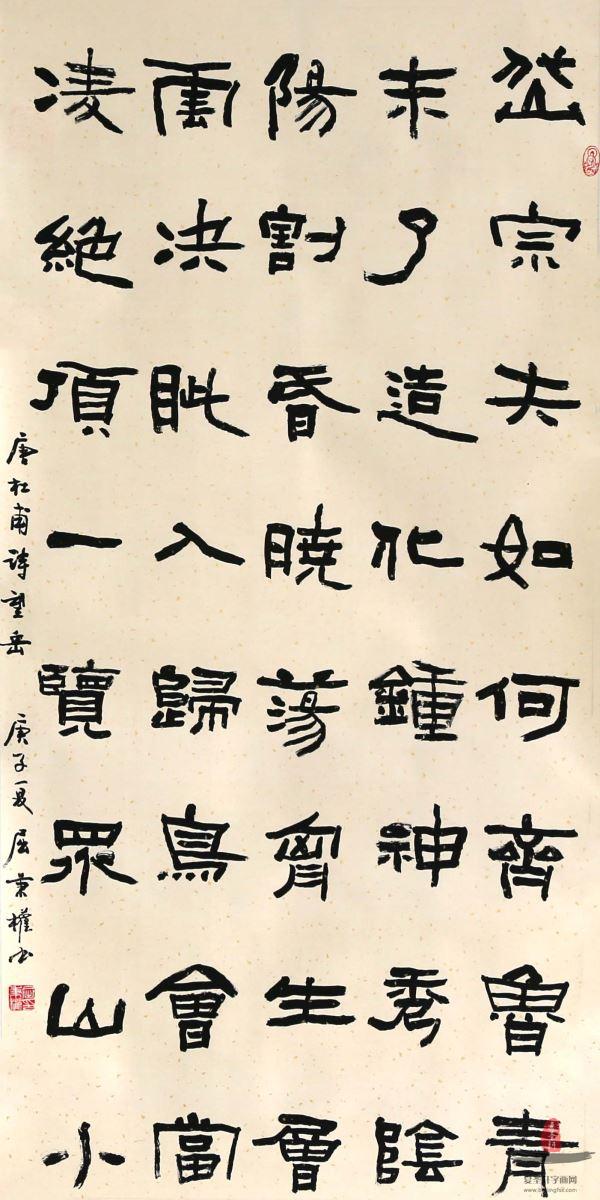 岱宗夫如何齊魯青
未了造化鍾神秀陰
陽割昏曉蕩胷生層
雲决眦入歸鳥會當
凌絕頂一覽眾山小
唐杜甫詩望岳 庚子夏 屈秉權书